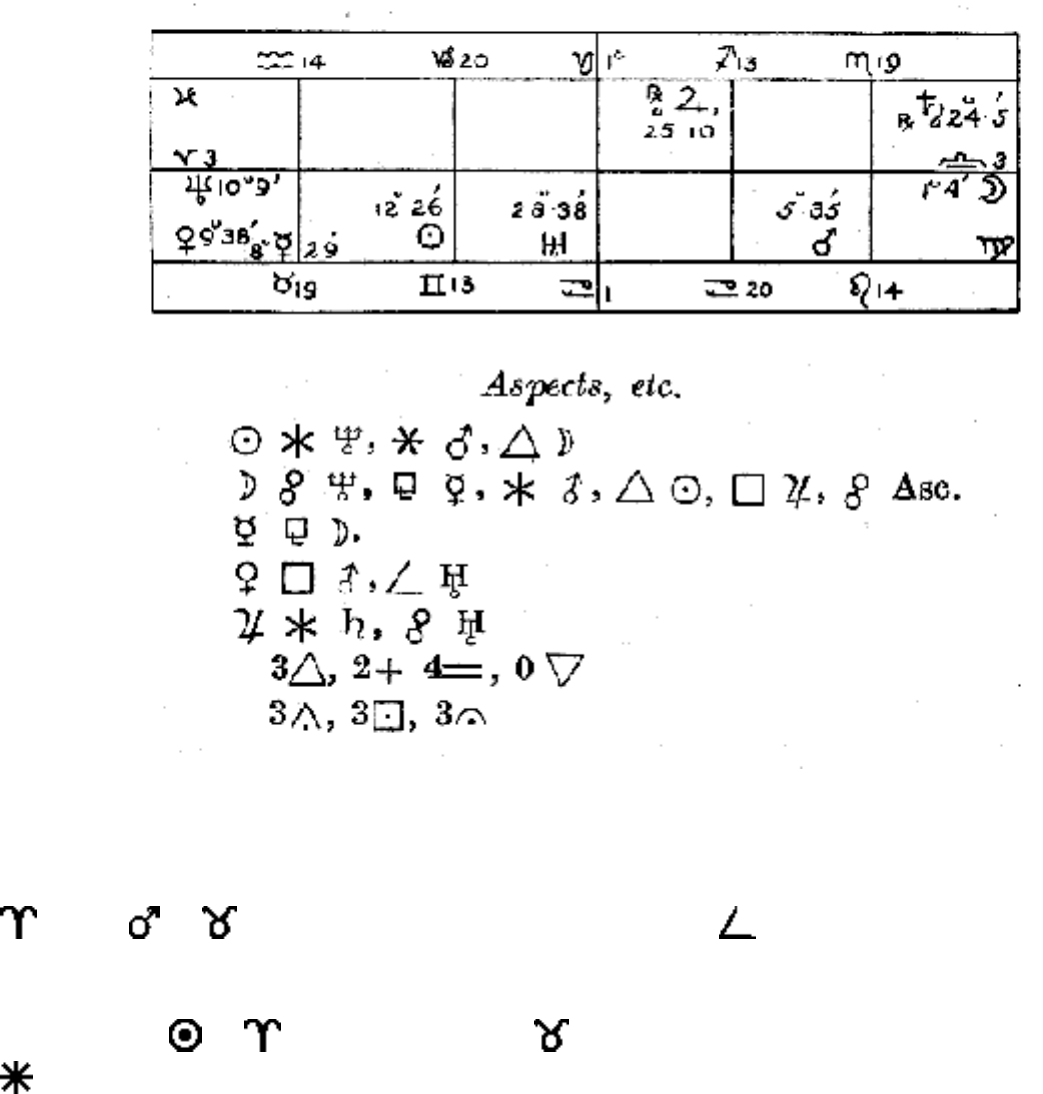 ♒ 14 ♑ 20 ♑ 1° ♐ 13 ♏ 19
♓ ℞ ♃ ℞ ♄ 24° 5′
25 10
♈ 3 ♎ 3
♆ 10° 9′ 12° 26′ 28° 38′ 5° 35′ 4′ ☽
♀ 9° 38′ 8° ☿ 29′ ☉ ♅ ♂ ♍
♉ 19 ♊ 13 ♋ 1 ♋ 20 ♌ 14
Aspects, etc.
☉ ⚹ ♆, ⚹ ♂, △ ☽
☽ ☍ ♆, ⚼ ☿, ⚹ ♂, △ ☉, □ ♃, ☍ Asc.
☿ ⚼ ☽.
♀ □ ♂, ∠ ♅
♃ ⚹ ♄, ☍ ♅
3△, 2+ 4=, 0 ▽
3⩑, 3⊡, 3⌢
♈ ♂ ♉ ∠
☉ ♈ ♉
⚹